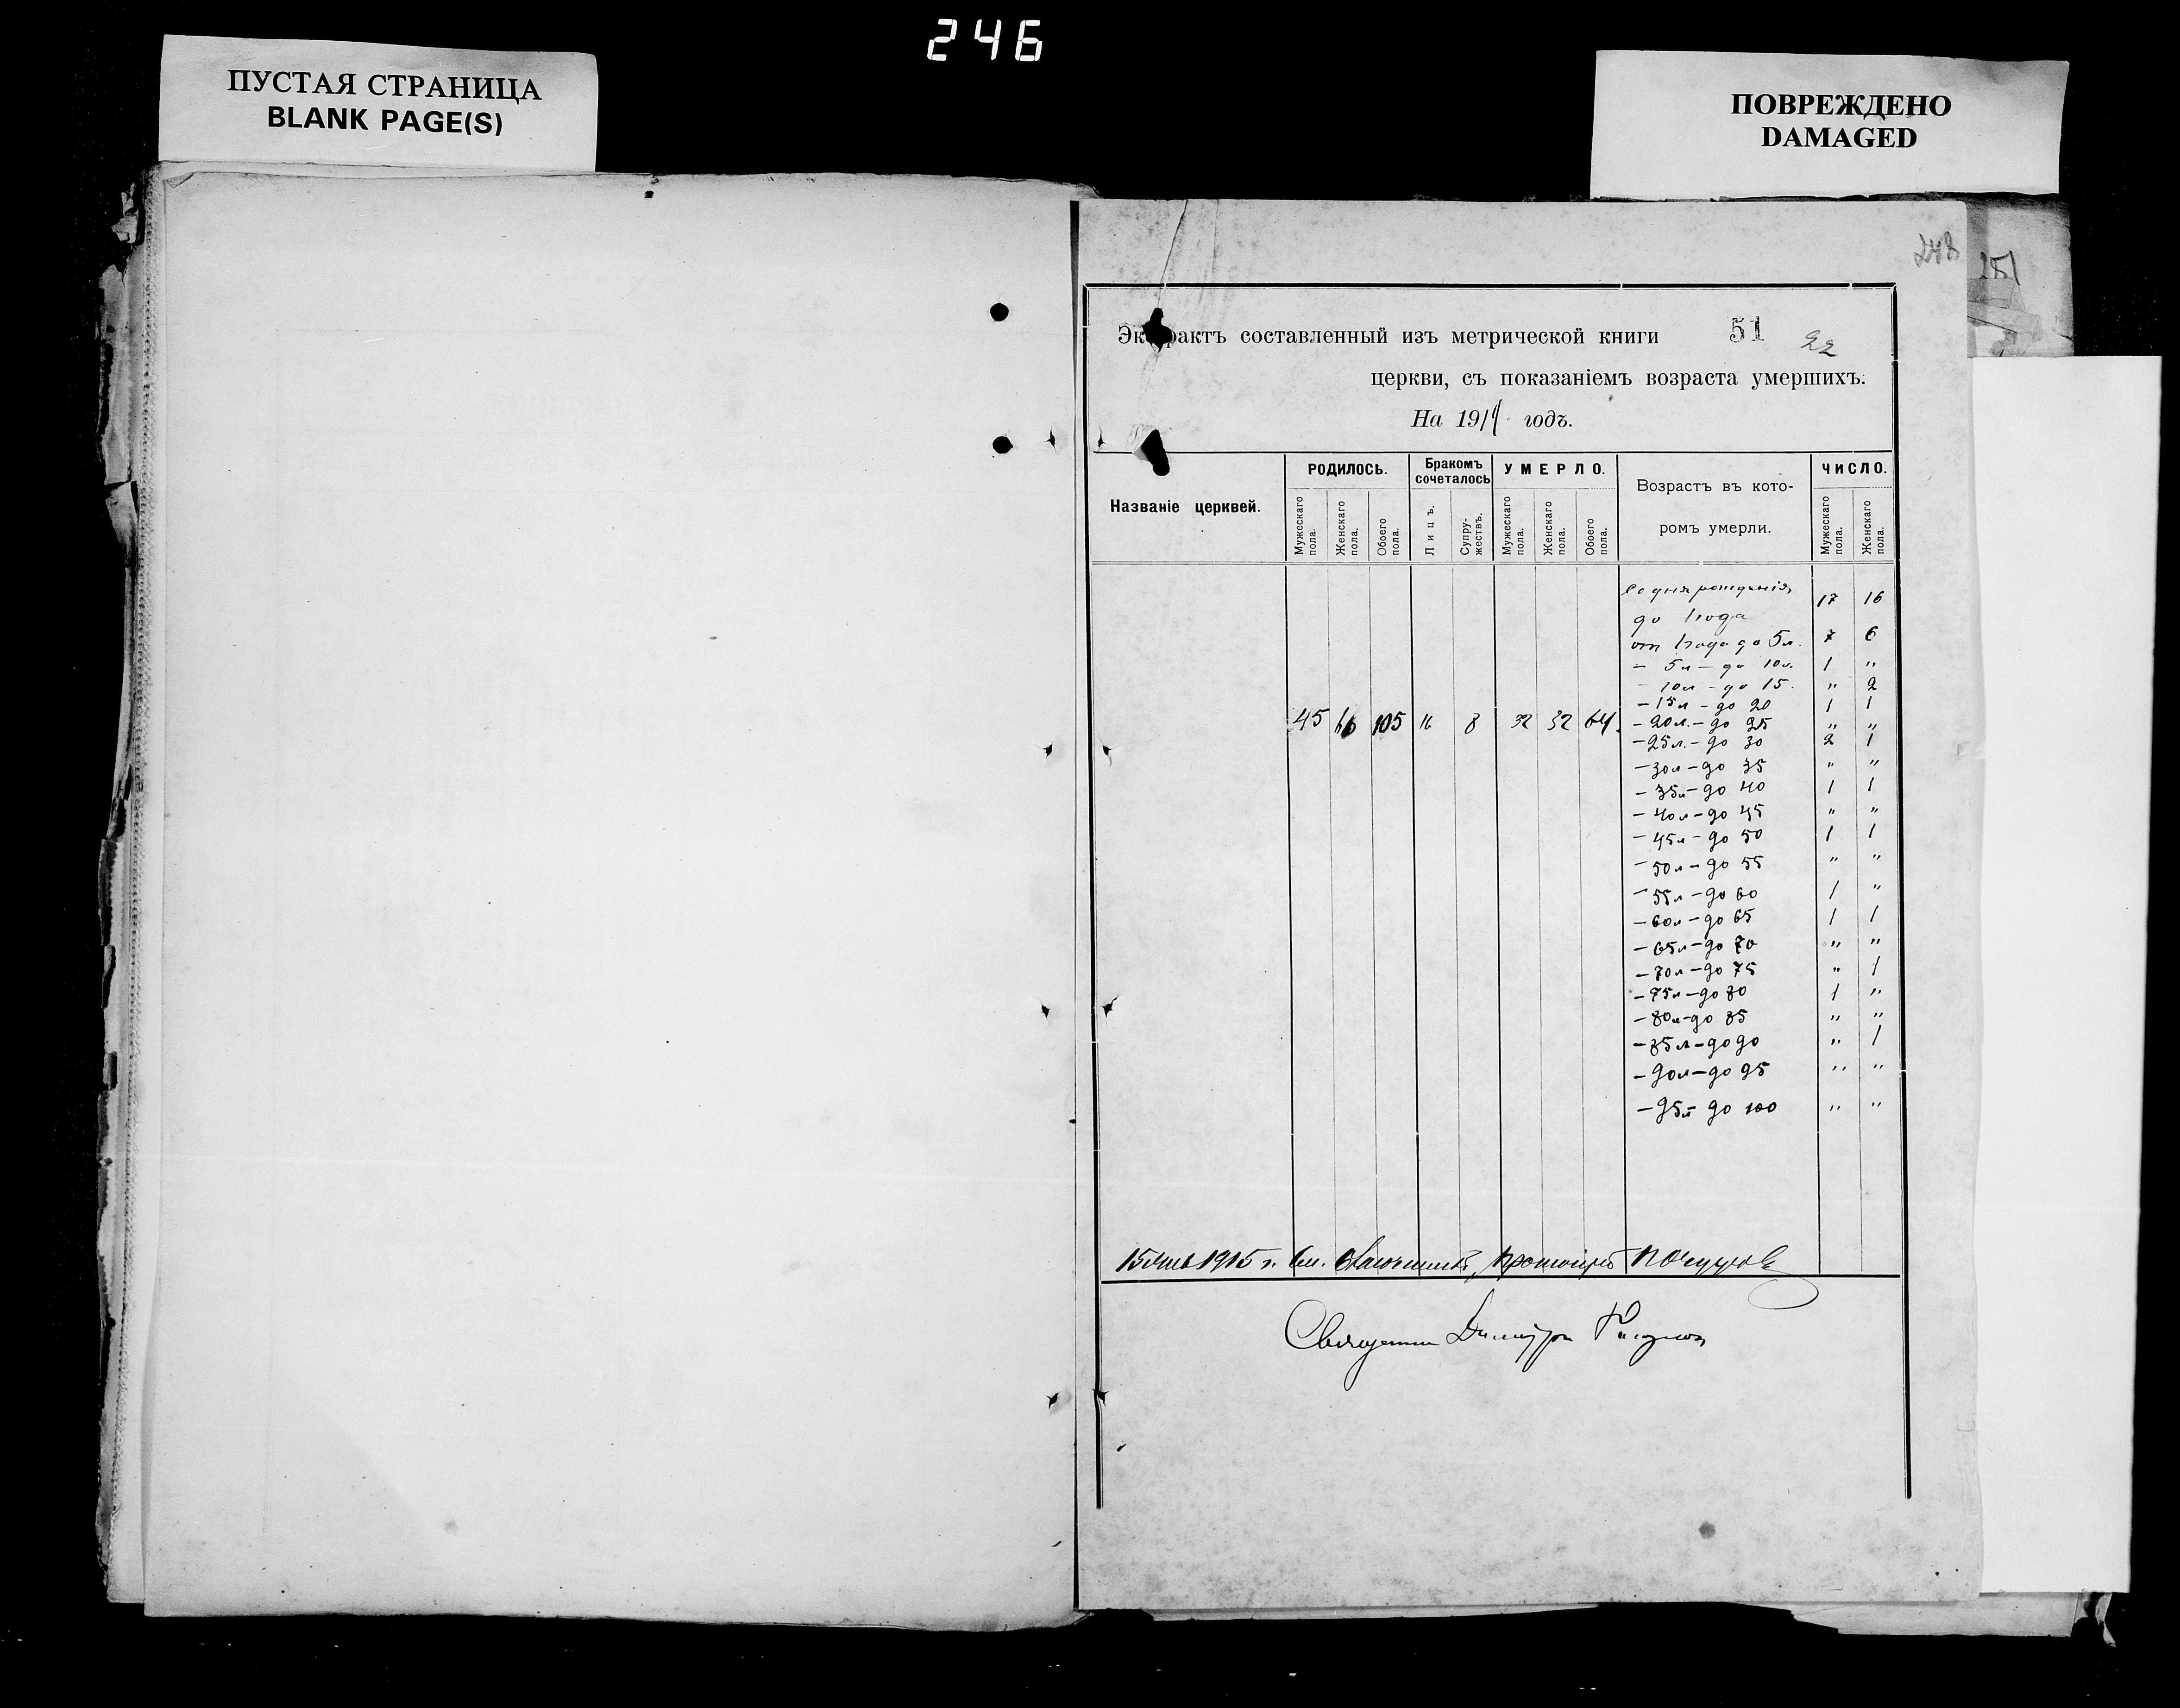 246
ПУСТАЯ СТРАНИЦА
BLANK PAGE(S)
ПОВРЕЖДЕНО
DAMAGED
248
251
Экстрактъ составленный изъ метрической книги 51 22
церкви, съ показаніемъ возраста умершихъ.
На 1914 годъ.
Названіе церквей.
РОДИЛОСЬ.
Мужескаго пола.
Женскаго пола.
Обоего пола.
Бракомъ сочеталось
Лицъ.
Супружествъ.
УМЕРЛО.
Мужескаго пола.
Женскаго пола.
Обоего пола.
Возрастъ въ кото-
ромъ умерли.
ЧИСЛО.
Мужескаго пола.
Женскаго пола.
Со дня рожденія
до 1 года 17 16
от 1 года до 5 л. 7 6
– 5 л – до 10 л. 1 "
– 10 л – до 15. " 2
– 15 л – до 20 1 1
45 105 8 32 32 64 – 20 л. – до 25 " "
– 25 л. – до 30 2 1
– 30 л – до 35 " "
– 35 л – до 40 1 1
– 40 л – до 45 " "
– 45 л – до 50 1 1
– 50 л – до 55 " "
– 55 л – до 60 1 "
– 60 л – до 65 1 1
– 65 л – до 70 " "
– 70 л – до 75 " 1
– 75 л – до 80 1 "
– 80 л – до 85 " "
– 85 л – до 90 " 1
– 90 л – до 95 " "
– 95 л – до 100 " "
1915 г. Благочинный, протоіерей
Священник Димитрій